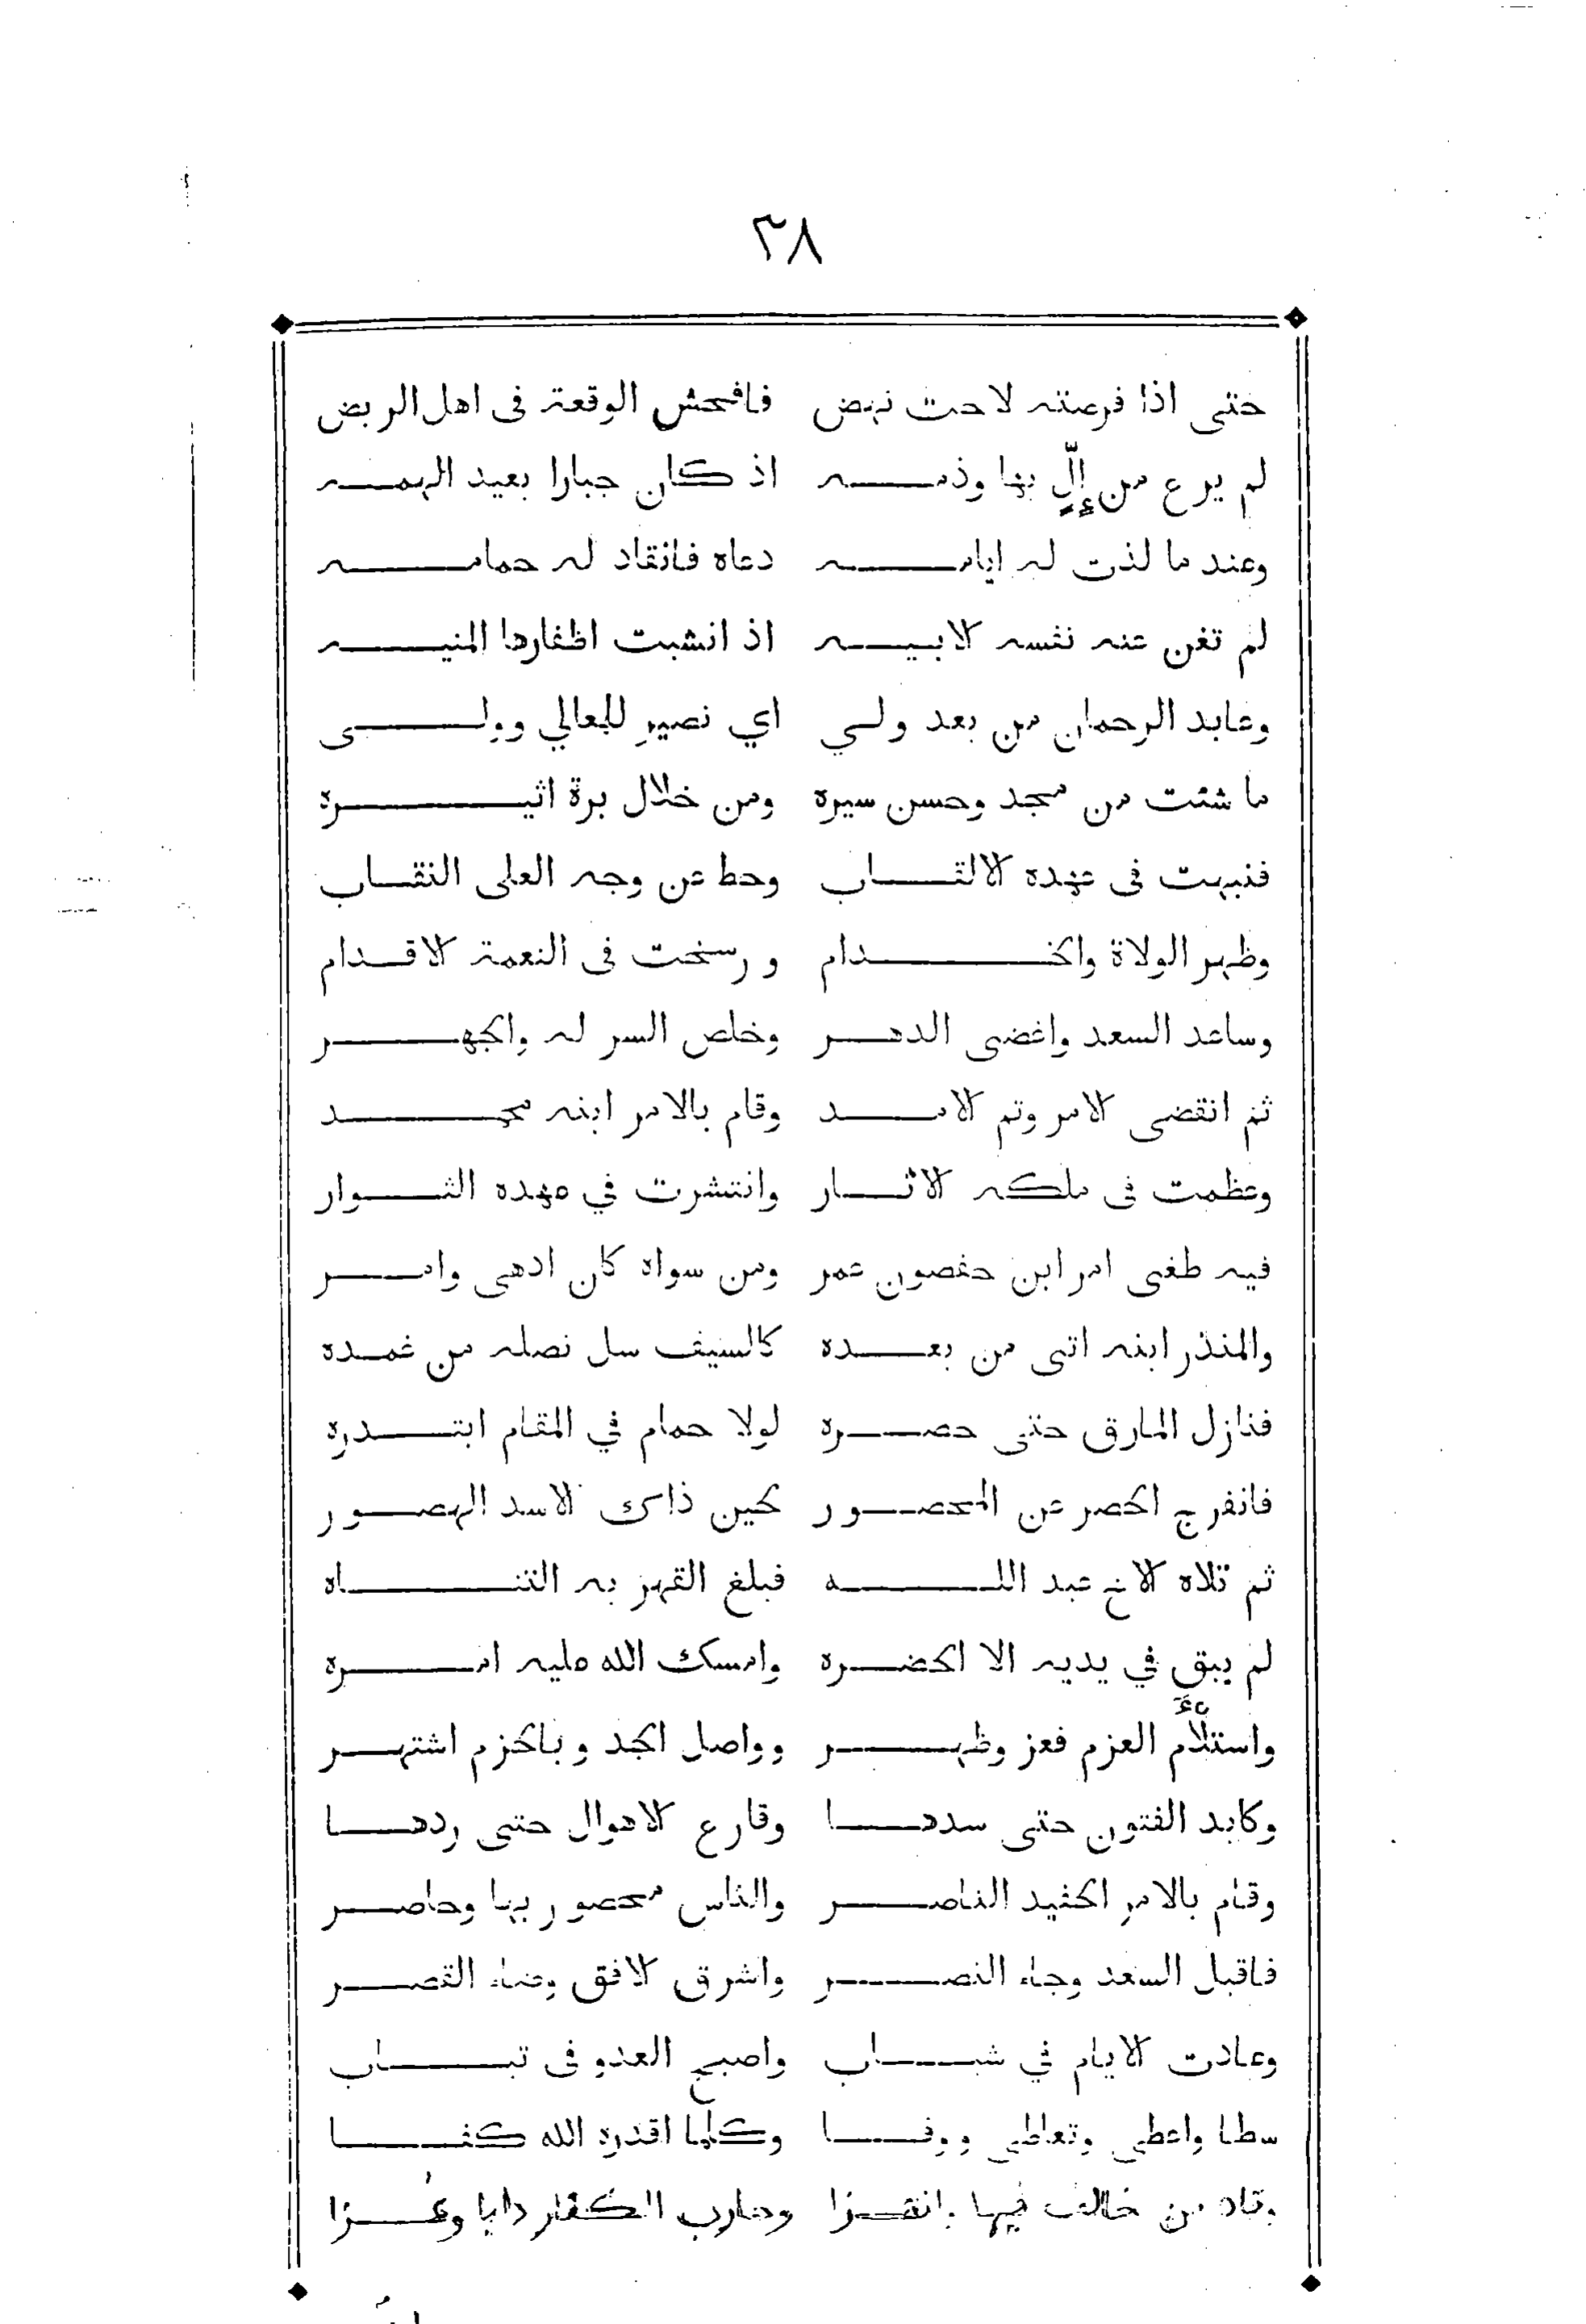 ٣٨
حتى اذا فرصته لاحت نهض فافحش الوقعة فى اهل الربض
لم يرع من إلٍّ بها وذمه اذ كان جبارا بعيد الهمه
وعند ما لذت له ايامه دعاه فانقاد له حمامه
لم تغن عنه نفسه الابيه اذ انشبت اظفارها المنيه
وعابد الرحمان من بعد ولي اي نصير للمعالي وولى
ما شئت من مجد وحسن سيره ومن خلال برة اثيره
فنبهت فى عهده الالقاب وحط عن وجه العلى النقاب
وظهر الولاة والخدام ورسخت فى النعمة الاقدام
وساعد السعد واغضى الدهر وخلص السر له والجهر
ثم انقضى الامر وتم الامد وقام بالامر ابنه محمد
وعظمت فى ملكه الاثار وانتشرت في عهده الثوار
فيه طغى امر ابن حفصون عمر ومن سواه كان ادهى وامر
والمنذر ابنه اتى من بعده كالسيف سل نصله من غمده
فنازل المارق حتى حصره لولا حمام في المقام ابتدره
فانفرج الحصر عن المحصور لحين ذاك الاسد الهصور
ثم تلاه الاخ عبد الله فبلغ القهر به التناه
لم يبق في يديه الا الحضره وامسك الله عليه امره
واستلأم العزم فعز وظهر وواصل الجد وبالحزم اشتهر
وكابد الفتون حتى سدها وقارع الاهوال حتى ردها
وقام بالامر الحفيد الناصر والناس محصور بها وحاصر
فاقبل السعد وجاء النصر واشرق الافق وضاء القصر
وعادت الايام في شباب واصبح العدو فى تباب
سطا واعطى وتعاطى ووفا وكلما اقدره الله كفا
وقاد من خالف فيها وانتزا وحارب الكفار دابا وغزا